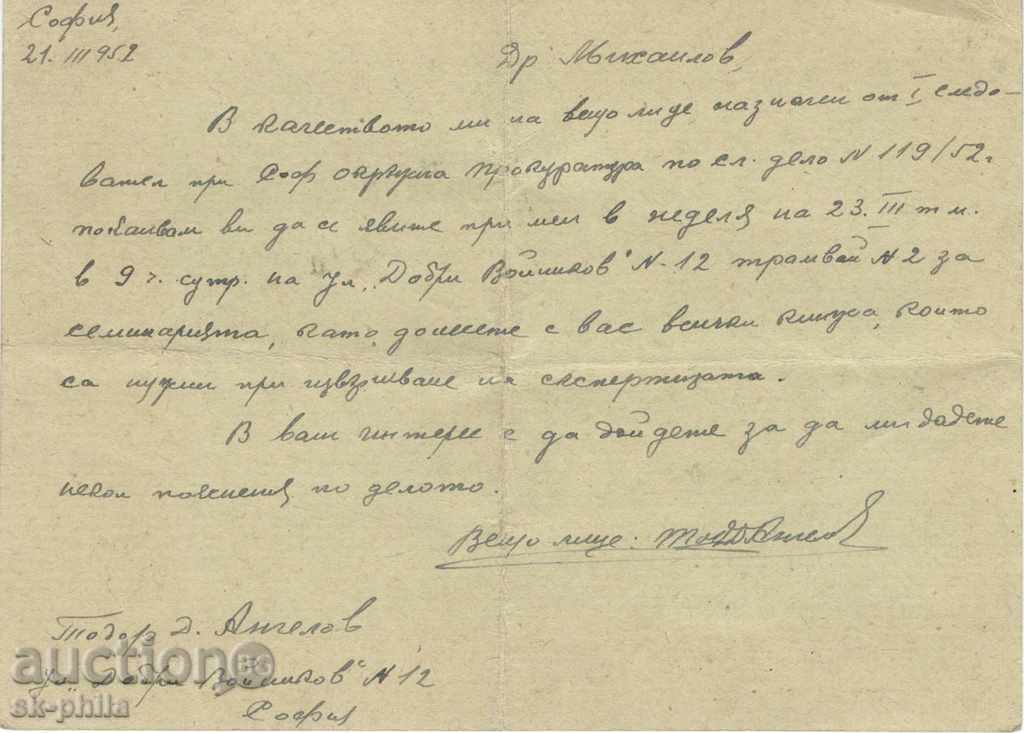 София,
21. III 952
Др Михаилов,
В качеството ми на вещо лице назначен от I следо-
вател при Соф окръжна прокуратура по сл. дело N 119/52 г
покаивам ви да се явите при мен в неделя на 23. III т м.
в 9 ч. сутр. на ул. „Добри Войников" N-12 трамвай N 2 за
семинарията, като донесете с вас всички книжа, които
са нужни при извършване на експертизата.
В ваш интерес е да дойдете за да ми дадете
некои пояснения по делото.
Вещо лице: ТодДАнгелов
Тодор Д. Ангелов
ул „Добри Войников" N 12
София
auction BG
sk-phila